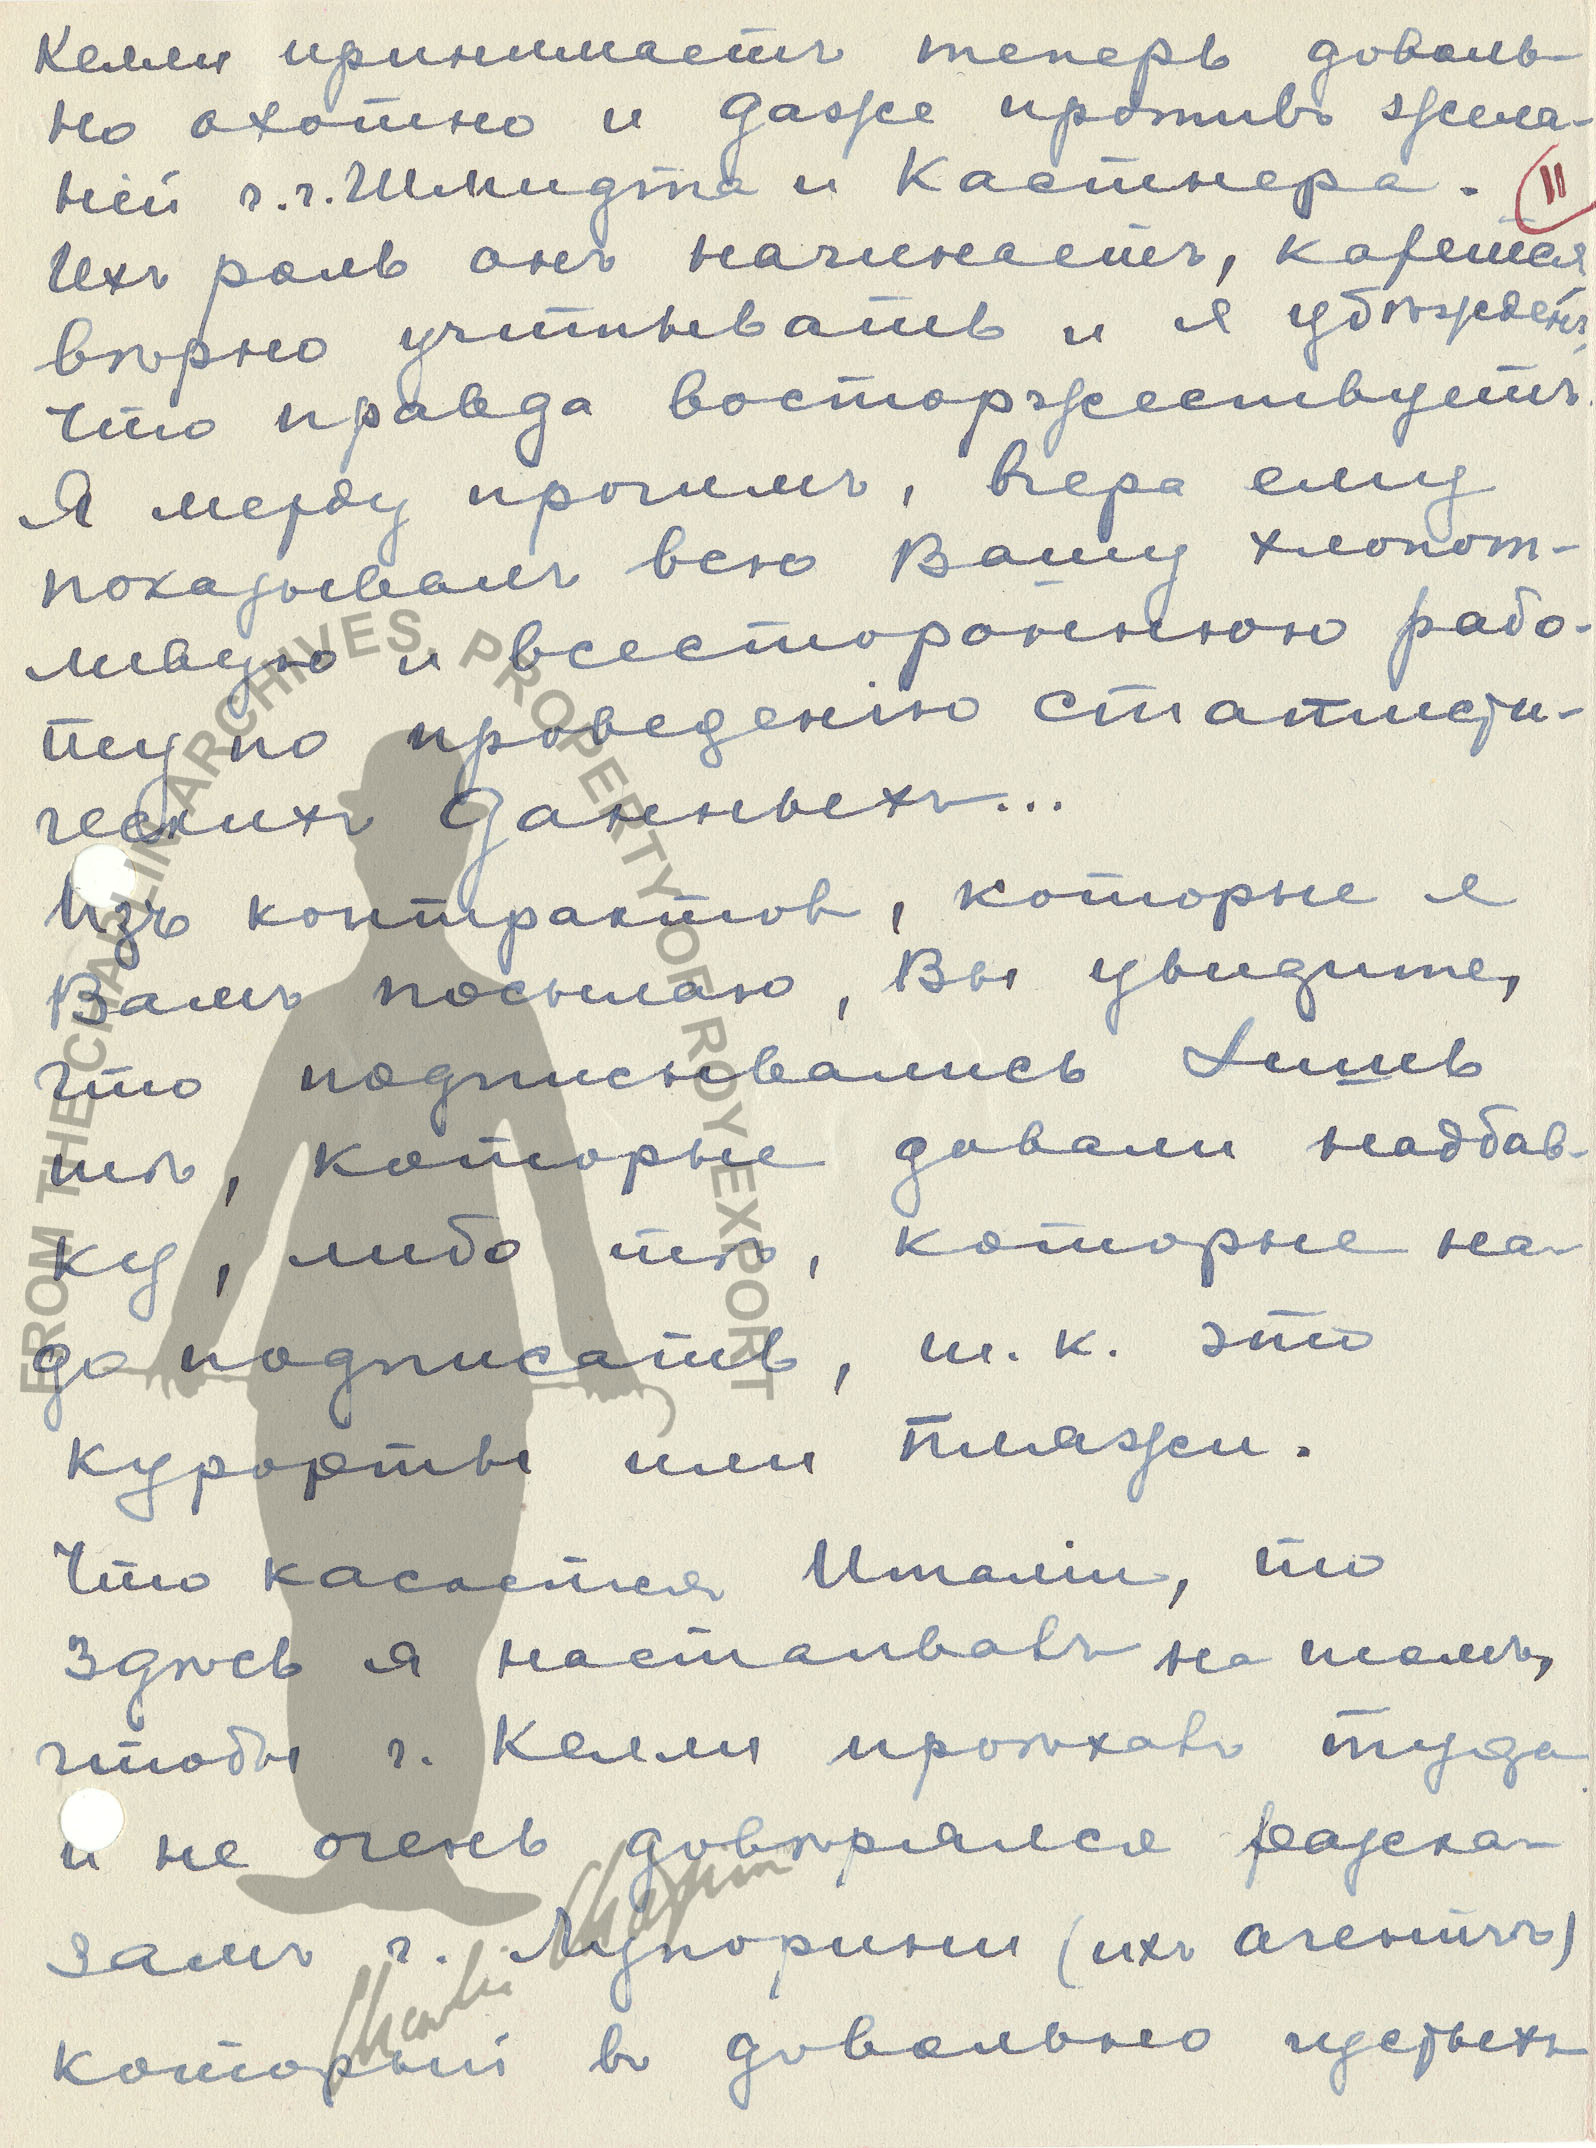 Келли принимаетъ теперь доволь-
но охотно и даже противъ жела-
ній г.г. Шмидта и Кастнера.
11
Ихъ роль онъ начинаетъ, кажется
вѣрно учитывать и я убѣжденъ,
что правда восторжествуетъ.
Я между прочимъ, вчера ему
показывалъ всю Вашу хлопот-
ливую и всестороннюю рабо-
ту по проведенію статисти-
ческихъ данныхъ...
Изъ контрактов, которые я
Вамъ посылаю, Вы увидите,
что подписывались Лишь
тѣ, которые давали надбав-
ку, либо тѣ, которые на-
до подписать, т.к. это
курорты или пляжи.
Что касается Италіи, то
здѣсь я настаивалъ на томъ,
чтобы г. Келли проѣхалъ туда
и не очень довѣрялся разска-
замъ г. Лупорини (ихъ агентъ)
который в довольно густыхъ
FROM THE CHAPLIN ARCHIVES, PROPERTY OF ROY EXPORT
Charlie Chaplin